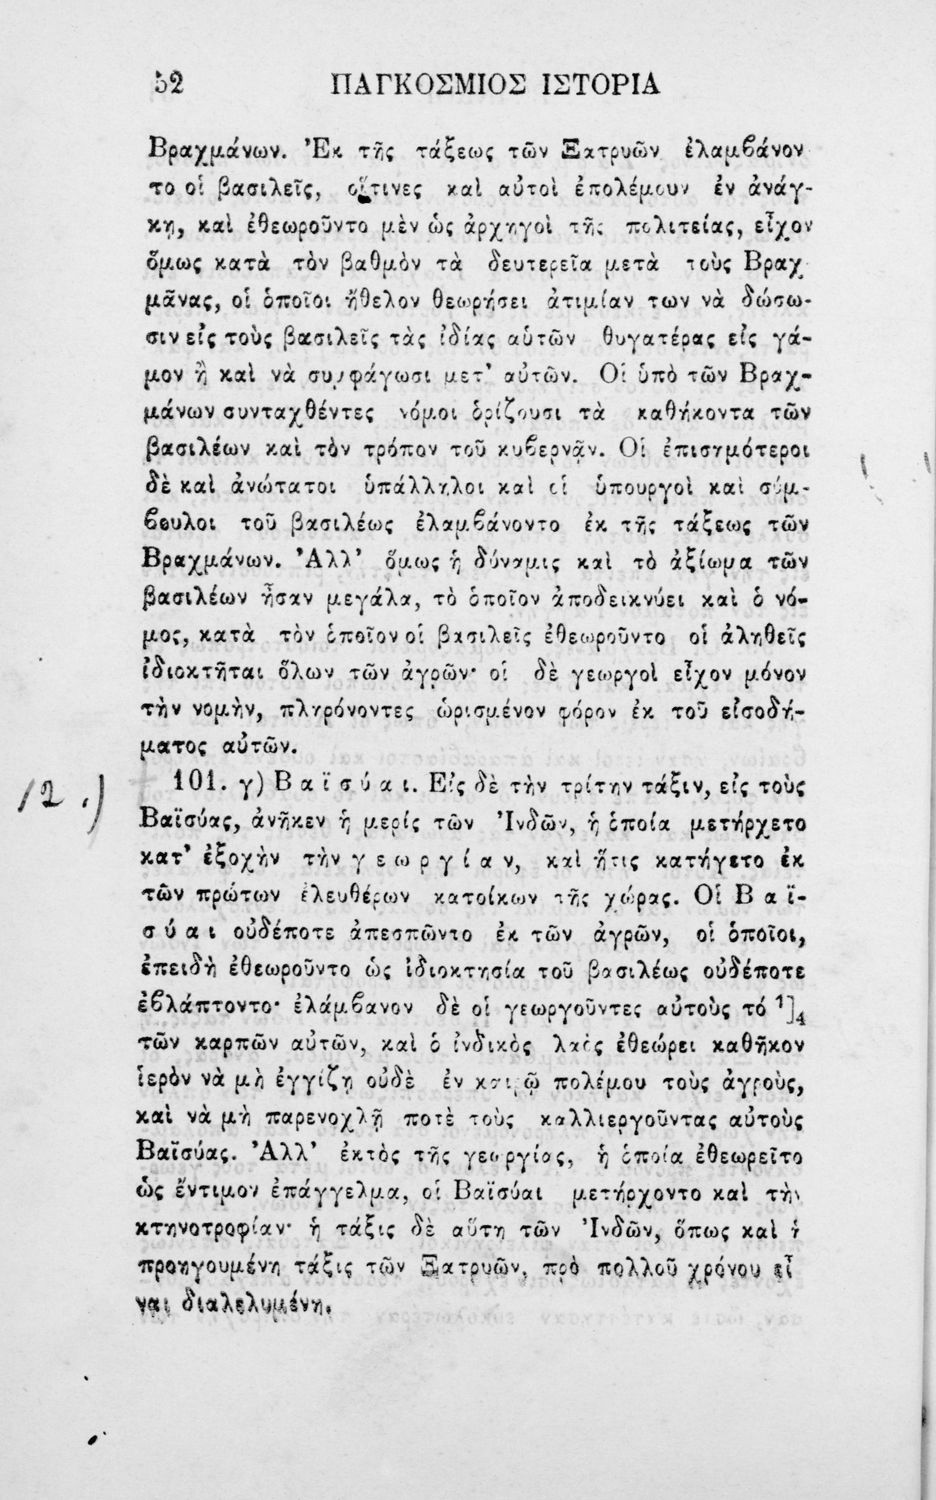 52 ΠΑΓΚΟΣΜΙΟΣ ΙΣΤΟΡΙΑ
Βραχμάνων. Ἐκ τῆς τάξεως τῶν Ξατρυῶν ἐλαμβάνον
το οἱ βασιλεῖς, οἵτινες καὶ αὐτοὶ ἐπολέμουν ἐν ἀνάγ-
κῃ, καὶ ἐθεωροῦντο μὲν ὡς ἀρχηγοὶ τῆς πολιτείας, εἶχον
ὅμως κατὰ τὸν βαθμὸν τὰ δευτερεῖα μετὰ τοὺς Βραχ
μᾶνας, οἱ ὁποῖοι ἤθελον θεωρήσει ἀτιμίαν των νὰ δώσω-
σιν εἰς τοὺς βασιλεῖς τὰς ἰδίας αὑτῶν θυγατέρας εἰς γά-
μον ἢ καὶ νὰ συμφάγωσι μετ' αὐτῶν. Οἱ ὑπὸ τῶν Βραχ-
μάνων συνταχθέντες νόμοι ὁρίζουσι τὰ καθήκοντα τῶν
βασιλέων καὶ τὸν τρόπον τοῦ κυβερνᾷν. Οἱ ἐπισημότεροι
δὲ καὶ ἀνώτατοι ὑπάλληλοι καὶ οἱ ὑπουργοὶ καὶ σύμ-
βουλοι τοῦ βασιλέως ἐλαμβάνοντο ἐκ τῆς τάξεως τῶν
Βραχμάνων. Ἀλλ' ὅμως ἡ δύναμις καὶ τὸ ἀξίωμα τῶν
βασιλέων ἦσαν μεγάλα, τὸ ὁποῖον ἀποδεικνύει καὶ ὁ νό-
μος, κατὰ τὸν ὁποῖον οἱ βασιλεῖς ἐθεωροῦντο οἱ ἀληθεῖς
ἰδιοκτῆται ὅλων τῶν ἀγρῶν· οἱ δὲ γεωργοὶ εἶχον μόνον
τὴν νομὴν, πληρόνοντες ὡρισμένον φόρον ἐκ τοῦ εἰσοδή-
ματος αὐτῶν.
12.) 101. γ) Βαϊσύαι. Εἰς δὲ τὴν τρίτην τάξιν, εἰς τοὺς
Βαϊσύας, ἀνῆκεν ἡ μερίς τῶν Ἰνδῶν, ἡ ὁποία μετήρχετο
κατ' ἐξοχὴν τὴν γεωργίαν, καὶ ἥτις κατήγετο ἐκ
τῶν πρώτων ἐλευθέρων κατοίκων τῆς χώρας. Οἱ Βαϊ-
σύαι οὐδέποτε ἀπεσπῶντο ἐκ τῶν ἀγρῶν, οἱ ὁποῖοι,
ἐπειδὴ ἐθεωροῦντο ὡς ἰδιοκτησία τοῦ βασιλέως οὐδέποτε
ἐβλάπτοντο· ἐλάμβανον δὲ οἱ γεωργοῦντες αὐτοὺς τό 1]4
τῶν καρπῶν αὐτῶν, καὶ ὁ ἰνδικὸς λαὸς ἐθεώρει καθῆκον
ἱερὸν νὰ μὴ ἐγγίζῃ οὐδὲ ἐν καιρῷ πολέμου τοὺς ἀγροὺς,
καὶ νὰ μὴ παρενοχλῇ ποτὲ τοὺς καλλιεργοῦντας αὐτοὺς
Βαϊσύας. Ἀλλ' ἐκτὸς τῆς γεωργίας, ἡ ὁποία ἐθεωρεῖτο
ὡς ἔντιμον ἐπάγγελμα, οἱ Βαϊσύαι μετήρχοντο καὶ τὴν
κτηνοτροφίαν· ἡ τάξις δὲ αὕτη τῶν Ἰνδῶν, ὅπως καὶ ἡ
προηγουμένη τάξις τῶν Ξατρυῶν, πρὸ πολλοῦ χρόνου εἶ
ναι διαλελυμένη.